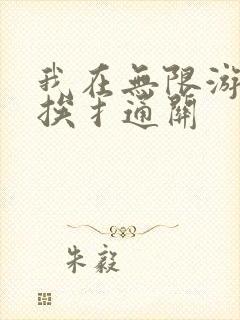 我在無限游
挨才通關
朱毅